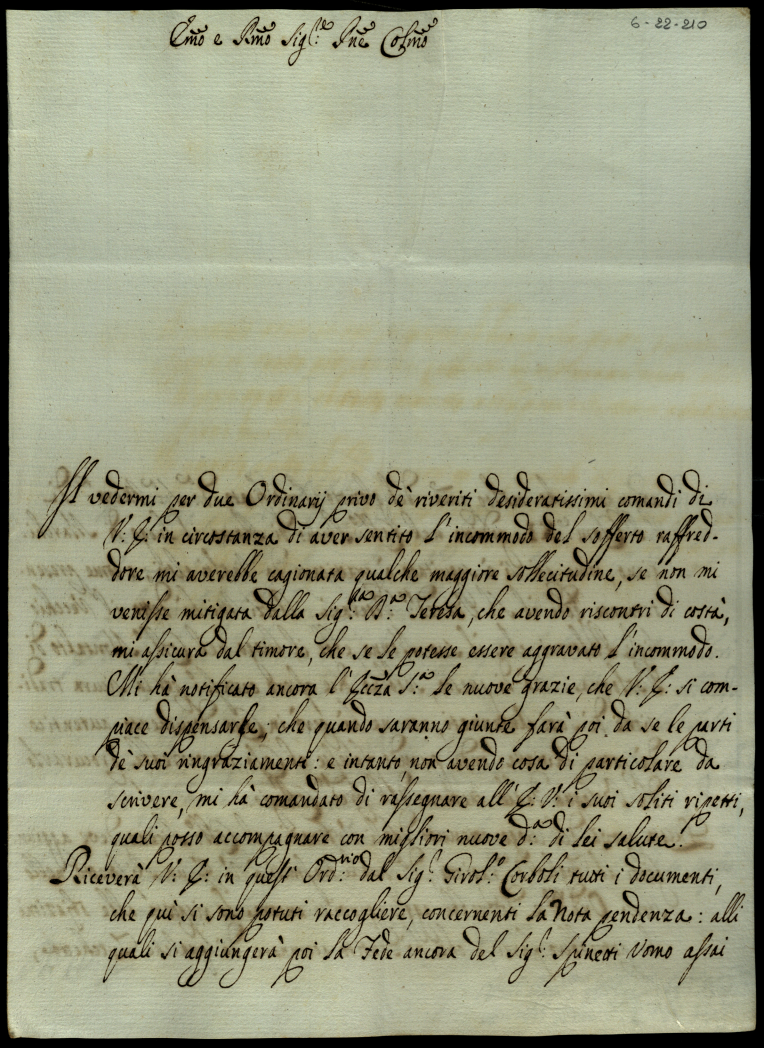 6-22-210
Emo e Rmo Sig:re Pne Colmo
Il vedermi per due Ordinarij privo de' riveriti desideratissimi comandi di
V: E: in circostanza di aver sentito l'incommodo del sofferto raffred-
dore mi averebbe cagionata qualche maggiore sollecitudine, se non mi
venisse mitigata dalla Sig:ra Ba: Teresa, che avendo riscontri di costà,
mi assicura dal timore, che se le potesse essere aggravato l'incommodo.
Mi hà notificato ancora l'Eccza S:a le nuove grazie, che V: E: si com-
piace dispensarle; che quando saranno giunte farà poi da se le parti
de' suoi ringraziamenti: e intanto, non avendo cosa di particolare da
scrivere, mi hà comandato di rassegnare all'E: V: i suoi soliti rispetti,
quali posso accompagnare con migliori nuove d:a di lei salute.
Riceverà V: E: in quest' Ord:rio dal Sig:r Girol:o Corboli tutti i documenti,
che quì si sono potuti raccogliere, concernenti la Nota pendenza: alli
quali si aggiungerà poi la Fede ancora del Sig:r Spinetti Uomo assai